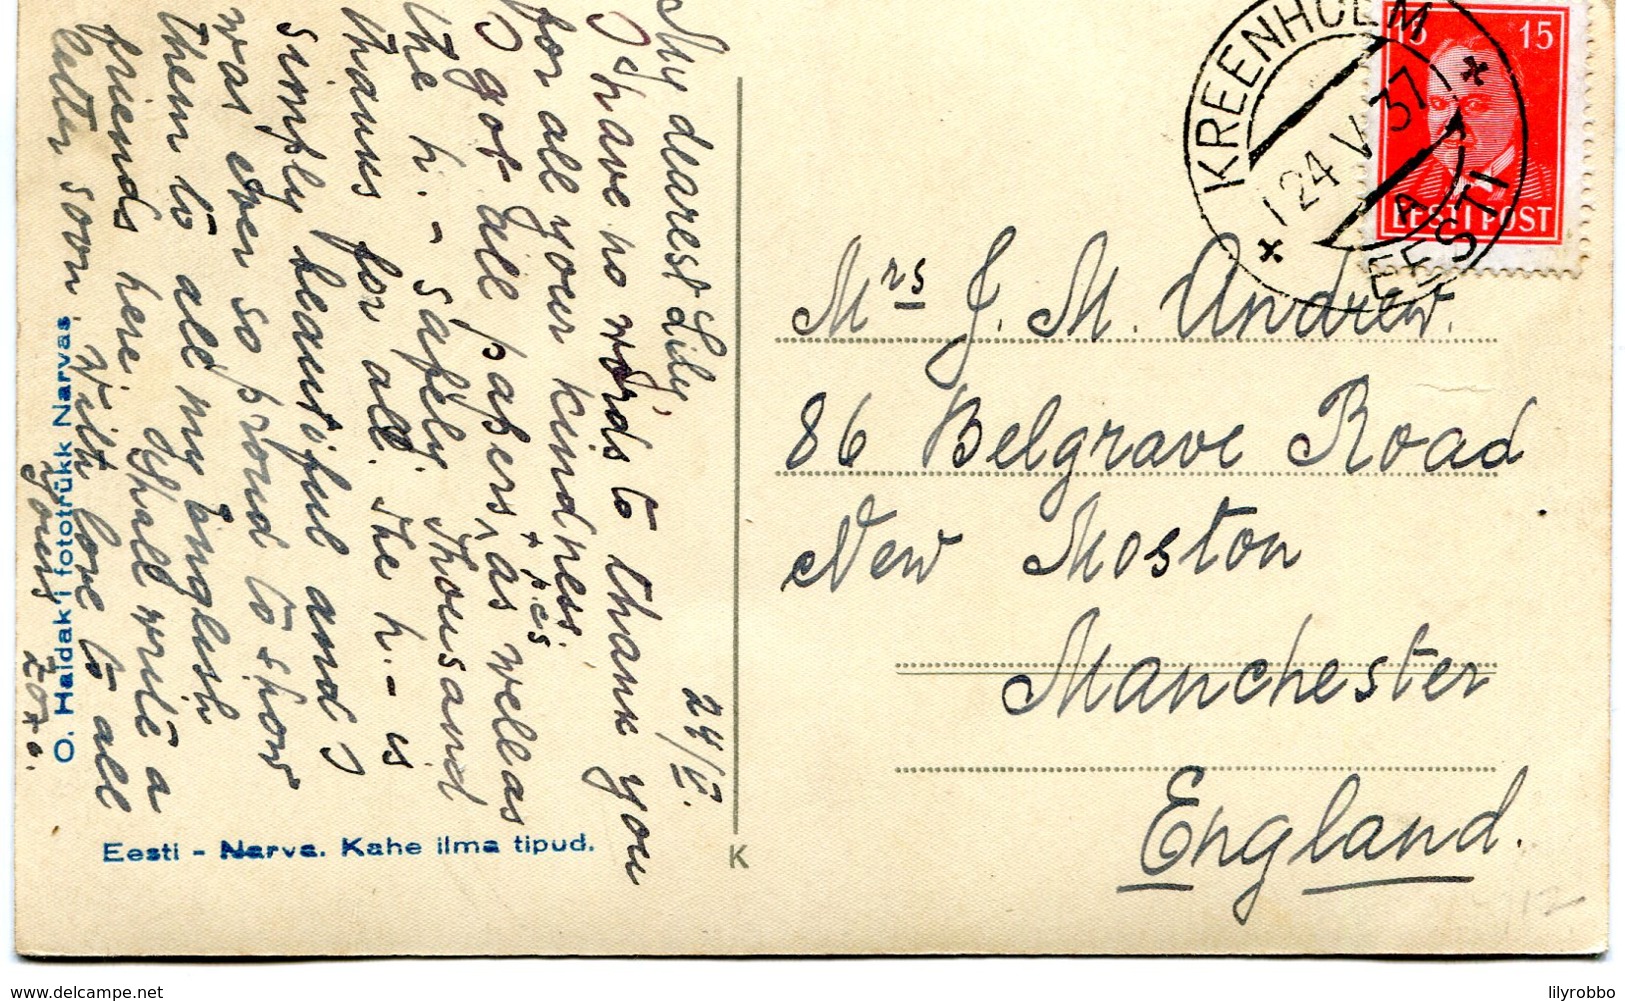 My dearest Lily,
I have no words to thank you
for all your kindness.
I got all papers, as well as
+ pcs
the h. - safely. Thousand
thanks for all. The h. - is
simply beautiful and I
was ever so proud to show
them to all my English
friends here. Shall write a
letter soon, with love to all
Yours
24/V.
O. Haidak'i fototrükk Narvas
Eesti - Narva. Kahe ilma tipud.
K
KREENHOLM
24 V 37
A
EESTI
15 15
EESTI POST
Mrs J. M. Andrew.
86 Belgrave Road
New Moston
Manchester
England.
delcampe.net
lilyrobbo